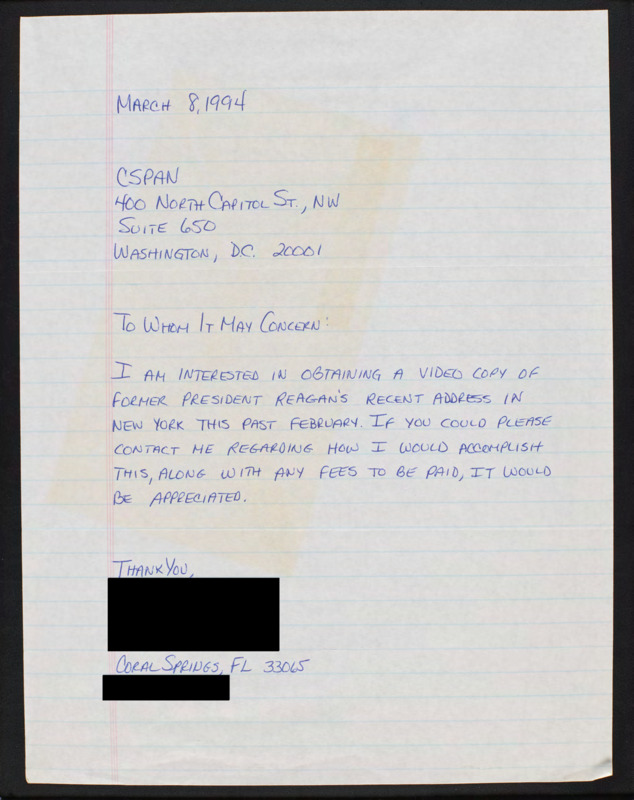 MARCH 8, 1994
CSPAN
400 NORTH CAPITOL ST., NW
SUITE 650
WASHINGTON, DC. 20001
TO WHOM IT MAY CONCERN:
I AM INTERESTED IN OBTAINING A VIDEO COPY OF
FORMER PRESIDENT REAGAN'S RECENT ADDRESS IN
NEW YORK THIS PAST FEBRUARY. IF YOU COULD PLEASE
CONTACT ME REGARDING HOW I WOULD ACCOMPLISH
THIS, ALONG WITH ANY FEES TO BE PAID, IT WOULD
BE APPRECIATED.
THANK YOU,
CORAL SPRINGS, FL 33065